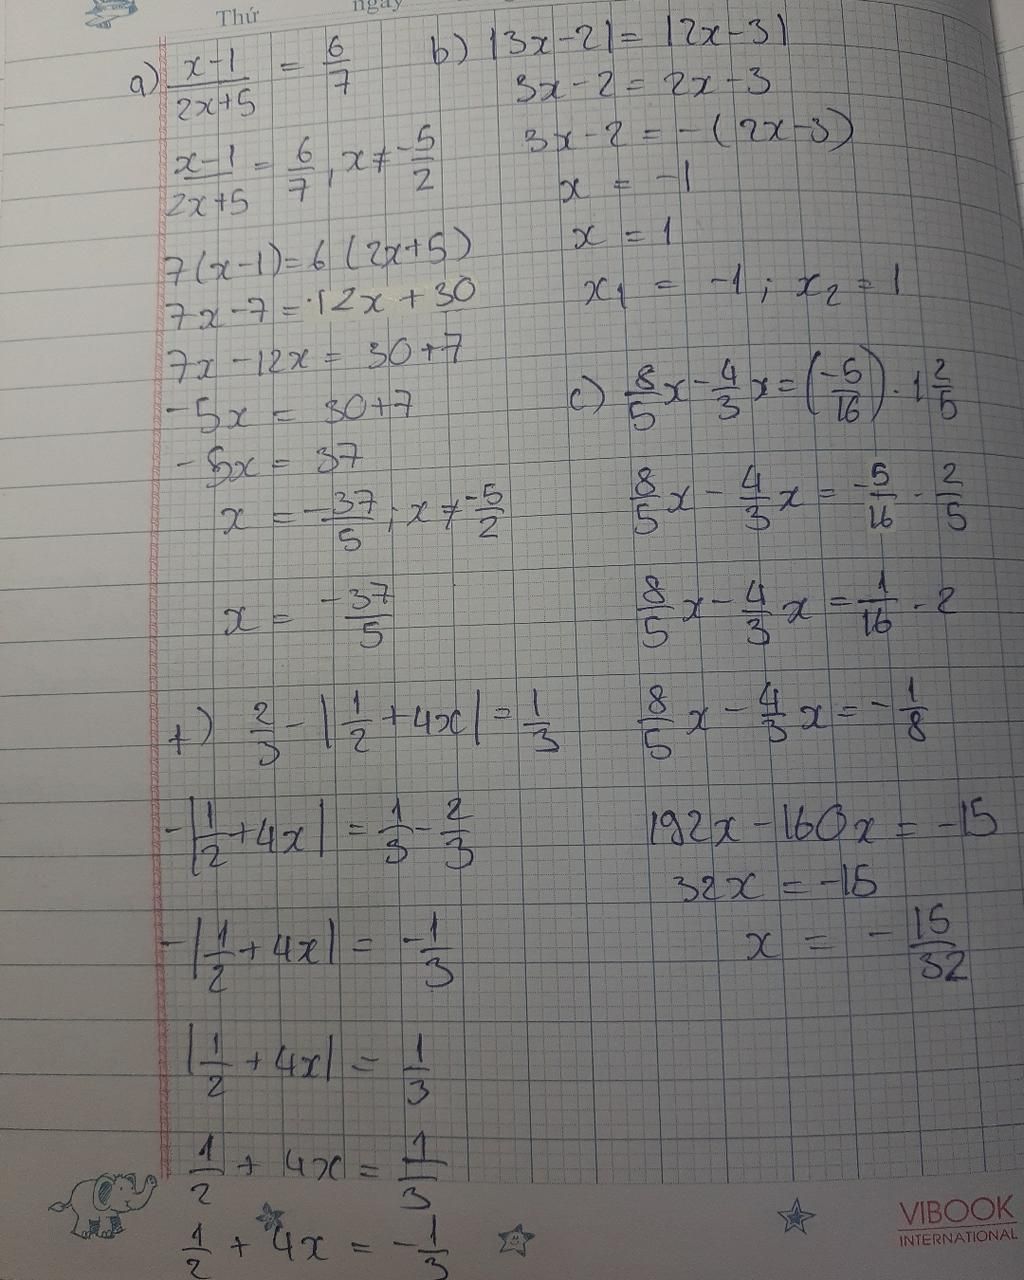 Thứ ngày
a) (x-1)/(2x+5) = 6/7
(x-1)/(2x+5) = 6/7, x ≠ -5/2
7(x-1) = 6(2x+5)
7x-7 = 12x+30
7x-12x = 30+7
-5x = 30+7
-5x = 37
x = -37/5; x ≠ -5/2
x = -37/5
b) |3x-2| = |2x-3|
3x-2 = 2x-3
3x-2 = -(2x-3)
x = -1
x = 1
x₁ = -1; x₂ = 1
c) 8/5x - 4/3x = (-5/16).1 2/5
8/5x - 4/3x = -5/16 . 2/5
8/5x - 4/3x = -1/16 . 2
8/5x - 4/3x = -1/8
192x-160x = -15
32x = -15
x = -15/32
+) 2/3 - |1/2+4x| = 1/3
-|1/2+4x| = 1/3 - 2/3
-|1/2+4x| = -1/3
|1/2+4x| = 1/3
1/2 + 4x = 1/3
1/2 + 4x = -1/3
VIBOOK
INTERNATIONAL